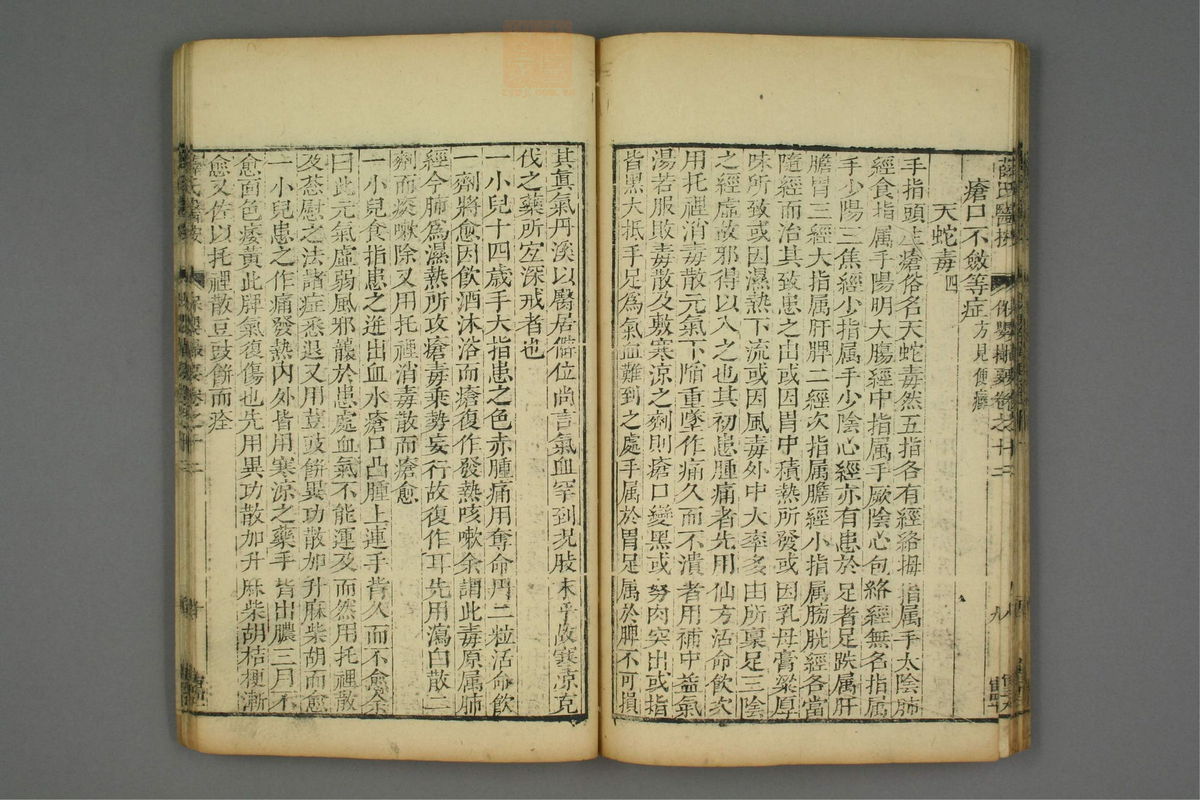 薛氏醫按 保嬰撮要卷之十二 九
瘡口不斂等症方見便癰
天蛇毒四
手指頭生瘡俗名天蛇毒然五指各有經絡拇指属手太陰肺
經食指属手陽明大腸經中指属手厥陰心包絡經無名指属
手少陽三焦經少指属手少陰心經亦有患於足者足趺属肝
膽胃三經大指属肝脾二經次指属膽經小指属膀胱經各當
隨經而治其致患之由或因胃中積熱所發或因乳母膏粱厚
味所致或因濕熱下流或因風毒外中大率多由所稟足三陰
之經虛故邪得以入之也其初患腫痛者先用仙方活命飲次
用托裡消毒散元氣下陷重墜作痛久而不潰者用補中益氣
湯若服敗毒散及敷寒涼之劑則瘡口變黑或努肉突出或指
皆黑大抵手足爲氣血難到之處手属於胃足属於脾不可損
其眞氣丹溪以醫居僻位尚言氣血罕到况肢末乎故寒凉尅
伐之藥所宜深戒者也
一小兒十四歲手大指患之色赤腫痛用奪命丹二粒活命飲
一劑將愈因飲酒沐浴而瘡復作發熱咳嗽余謂此毒原属肺
經今肺爲濕熱所攻瘡毒乘勢妄行故復作耳先用瀉白散二
劑而痰嗽除又用托裡消毒散而瘡愈
一小兒食指患之迸出血水瘡口凸腫上連手背久而不愈余
曰此元氣虛弱風邪襲於患處血氣不能運及而然用托裡散
及葱慰之法諸症悉退又用荳豉餅異功散加升麻柴胡而愈
一小兒患之作痛發熱内外皆用寒涼之藥手背出膿三月不
愈面色痿黃此脾氣復傷也先用異功散加升麻柴胡桔梗漸
愈又佐以托裡散豆豉餅而痊
薛氏醫按 保嬰撮要卷之十二